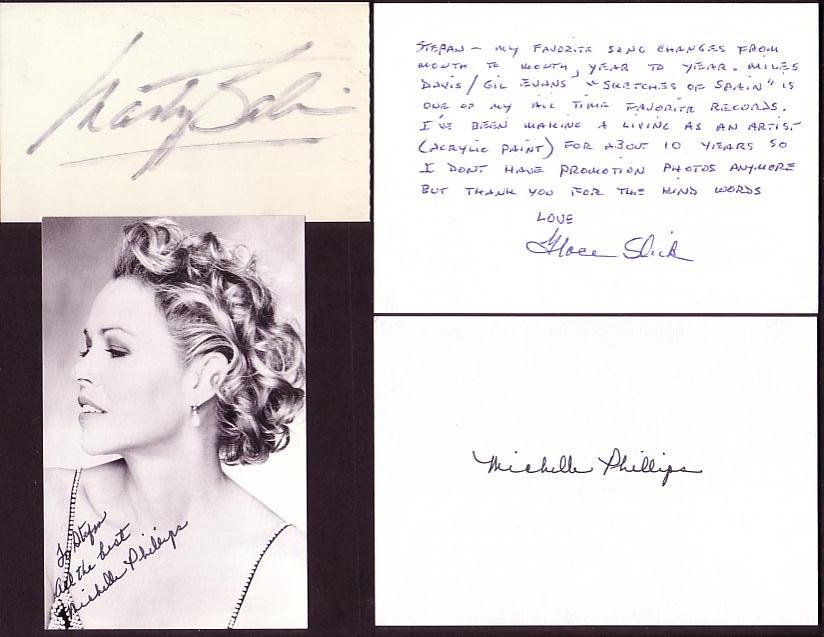 Marty Balin
STEFAN — MY FAVORITE SONG CHANGES FROM
MONTH TO MONTH, YEAR TO YEAR. MILES
DAVIS/GIL EVANS "SKETCHES OF SPAIN" IS
ONE OF MY ALL TIME FAVORITE RECORDS.
I'VE BEEN MAKING A LIVING AS AN ARTIST
(ACRYLIC PAINT) FOR ABOUT 10 YEARS SO
I DONT HAVE PROMOTION PHOTOS ANYMORE
BUT THANK YOU FOR THE KIND WORDS
LOVE
Grace Slick
To Stefan
All the best
Michelle Phillips
Michelle Phillips